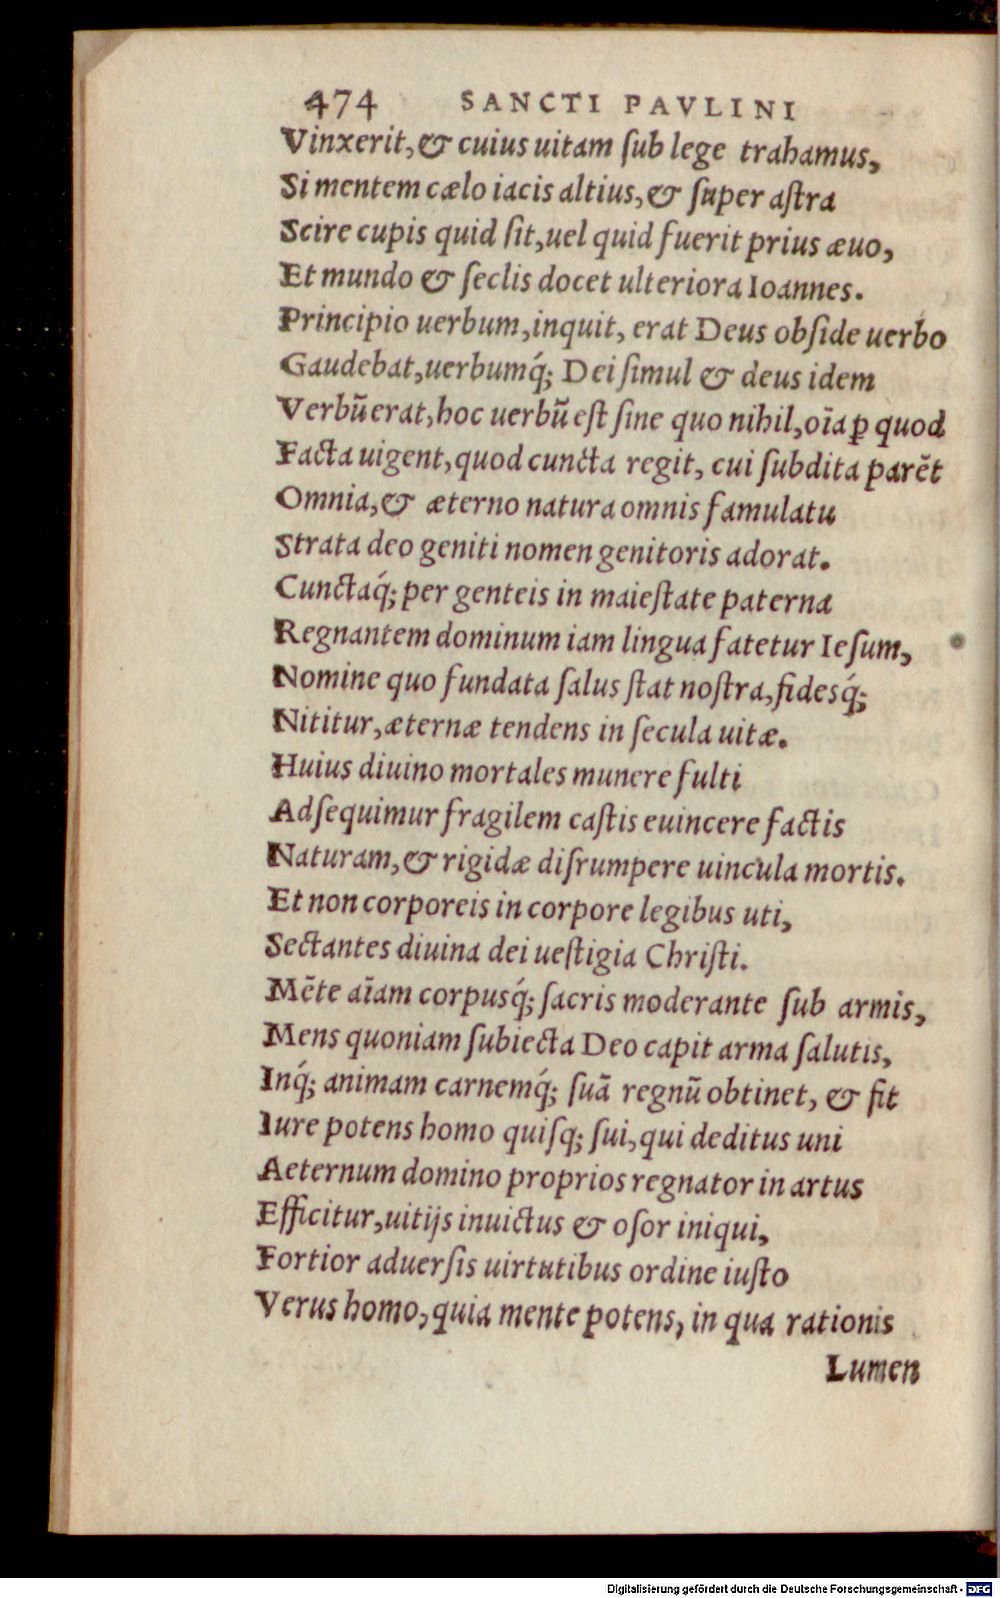 474 SANCTI PAVLINI
Vinxerit, & cuius uitam ſub lege trahamus,
Si mentem cælo iacis altius, & ſuper aſtra
Scire cupis quid ſit, uel quid fuerit prius æuo,
Et mundo & ſeclis docet ulteriora Ioannes.
Principio uerbum, inquit, erat Deus obſide uerbo
Gaudebat, uerbumq́; Dei ſimul & deus idem
Verbũ erat, hoc uerbũ eſt ſine quo nihil, oīa ꝑ quod
Facta uigent, quod cuncta regit, cui ſubdita parẽt
Omnia, & æterno natura omnis famulatu
Strata deo geniti nomen genitoris adorat.
Cunctaq́; per genteis in maieſtate paterna
Regnantem dominum iam lingua fatetur Ieſum,
Nomine quo fundata ſalus ſtat noſtra, fidesq́;
Nititur, æternæ tendens in ſecula uitæ.
Huius diuino mortales munere fulti
Adſequimur fragilem caſtis euincere factis
Naturam, & rigidæ diſrumpere uincula mortis.
Et non corporeis in corpore legibus uti,
Sectantes diuina dei ueſtigia Chriſti.
Mẽte aīam corpusq́; ſacris moderante ſub armis,
Mens quoniam ſubiecta Deo capit arma ſalutis,
Inq́; animam carnemq́; ſuã regnũ obtinet, & fit
Iure potens homo quiſq; ſui, qui deditus uni
Aeternum domino proprios regnator in artus
Efficitur, uitijs inuictus & oſor iniqui,
Fortior aduerſis uirtutibus ordine iuſto
Verus homo, quia mente potens, in qua rationis
Lumen
Digitalisierung gefördert durch die Deutsche Forschungsgemeinschaft - DFG